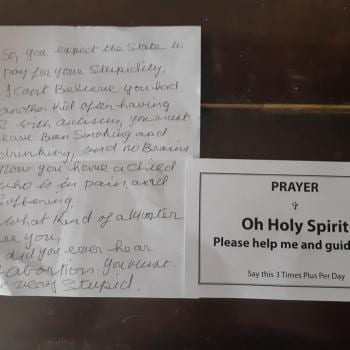 So, you expect the State to
pay for your Stupidity.
I cant Believe you had
another kid after having
2 with autism, you must
have Been Smoking and
drinking, and no Brains
Now you have a Child
who is in pain and
Suffering.
what Kind of a
are you,
did you ever hear
abortion. You must
very Stupid.
PRAYER
Oh Holy Spirit
Please help me and guid
Say this 3 Times Plus Per Day